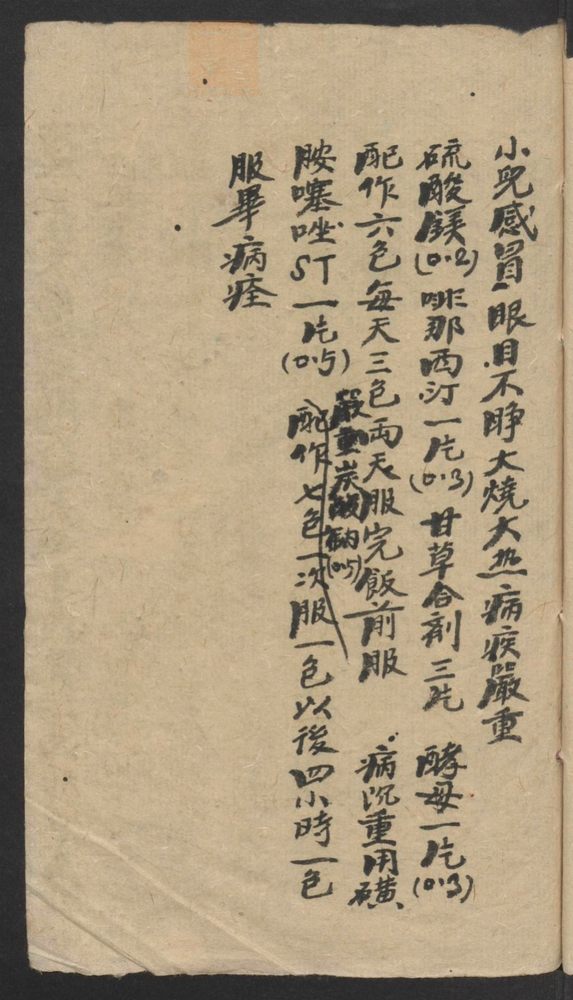 小兒感冒眼目不睁大燒大热病疾嚴重
硫酸鎂(0.2)啡那西汀一片(0.3)甘草合剤三片 酵母一片(0.3)
配作六包每天三包両天服完飯前服 病況重用磺
嚴重炭酸鈉(0.5)
胺噻唑ST一片(0.5)配作七包一次服一包以後四小時一包
服畢病痊